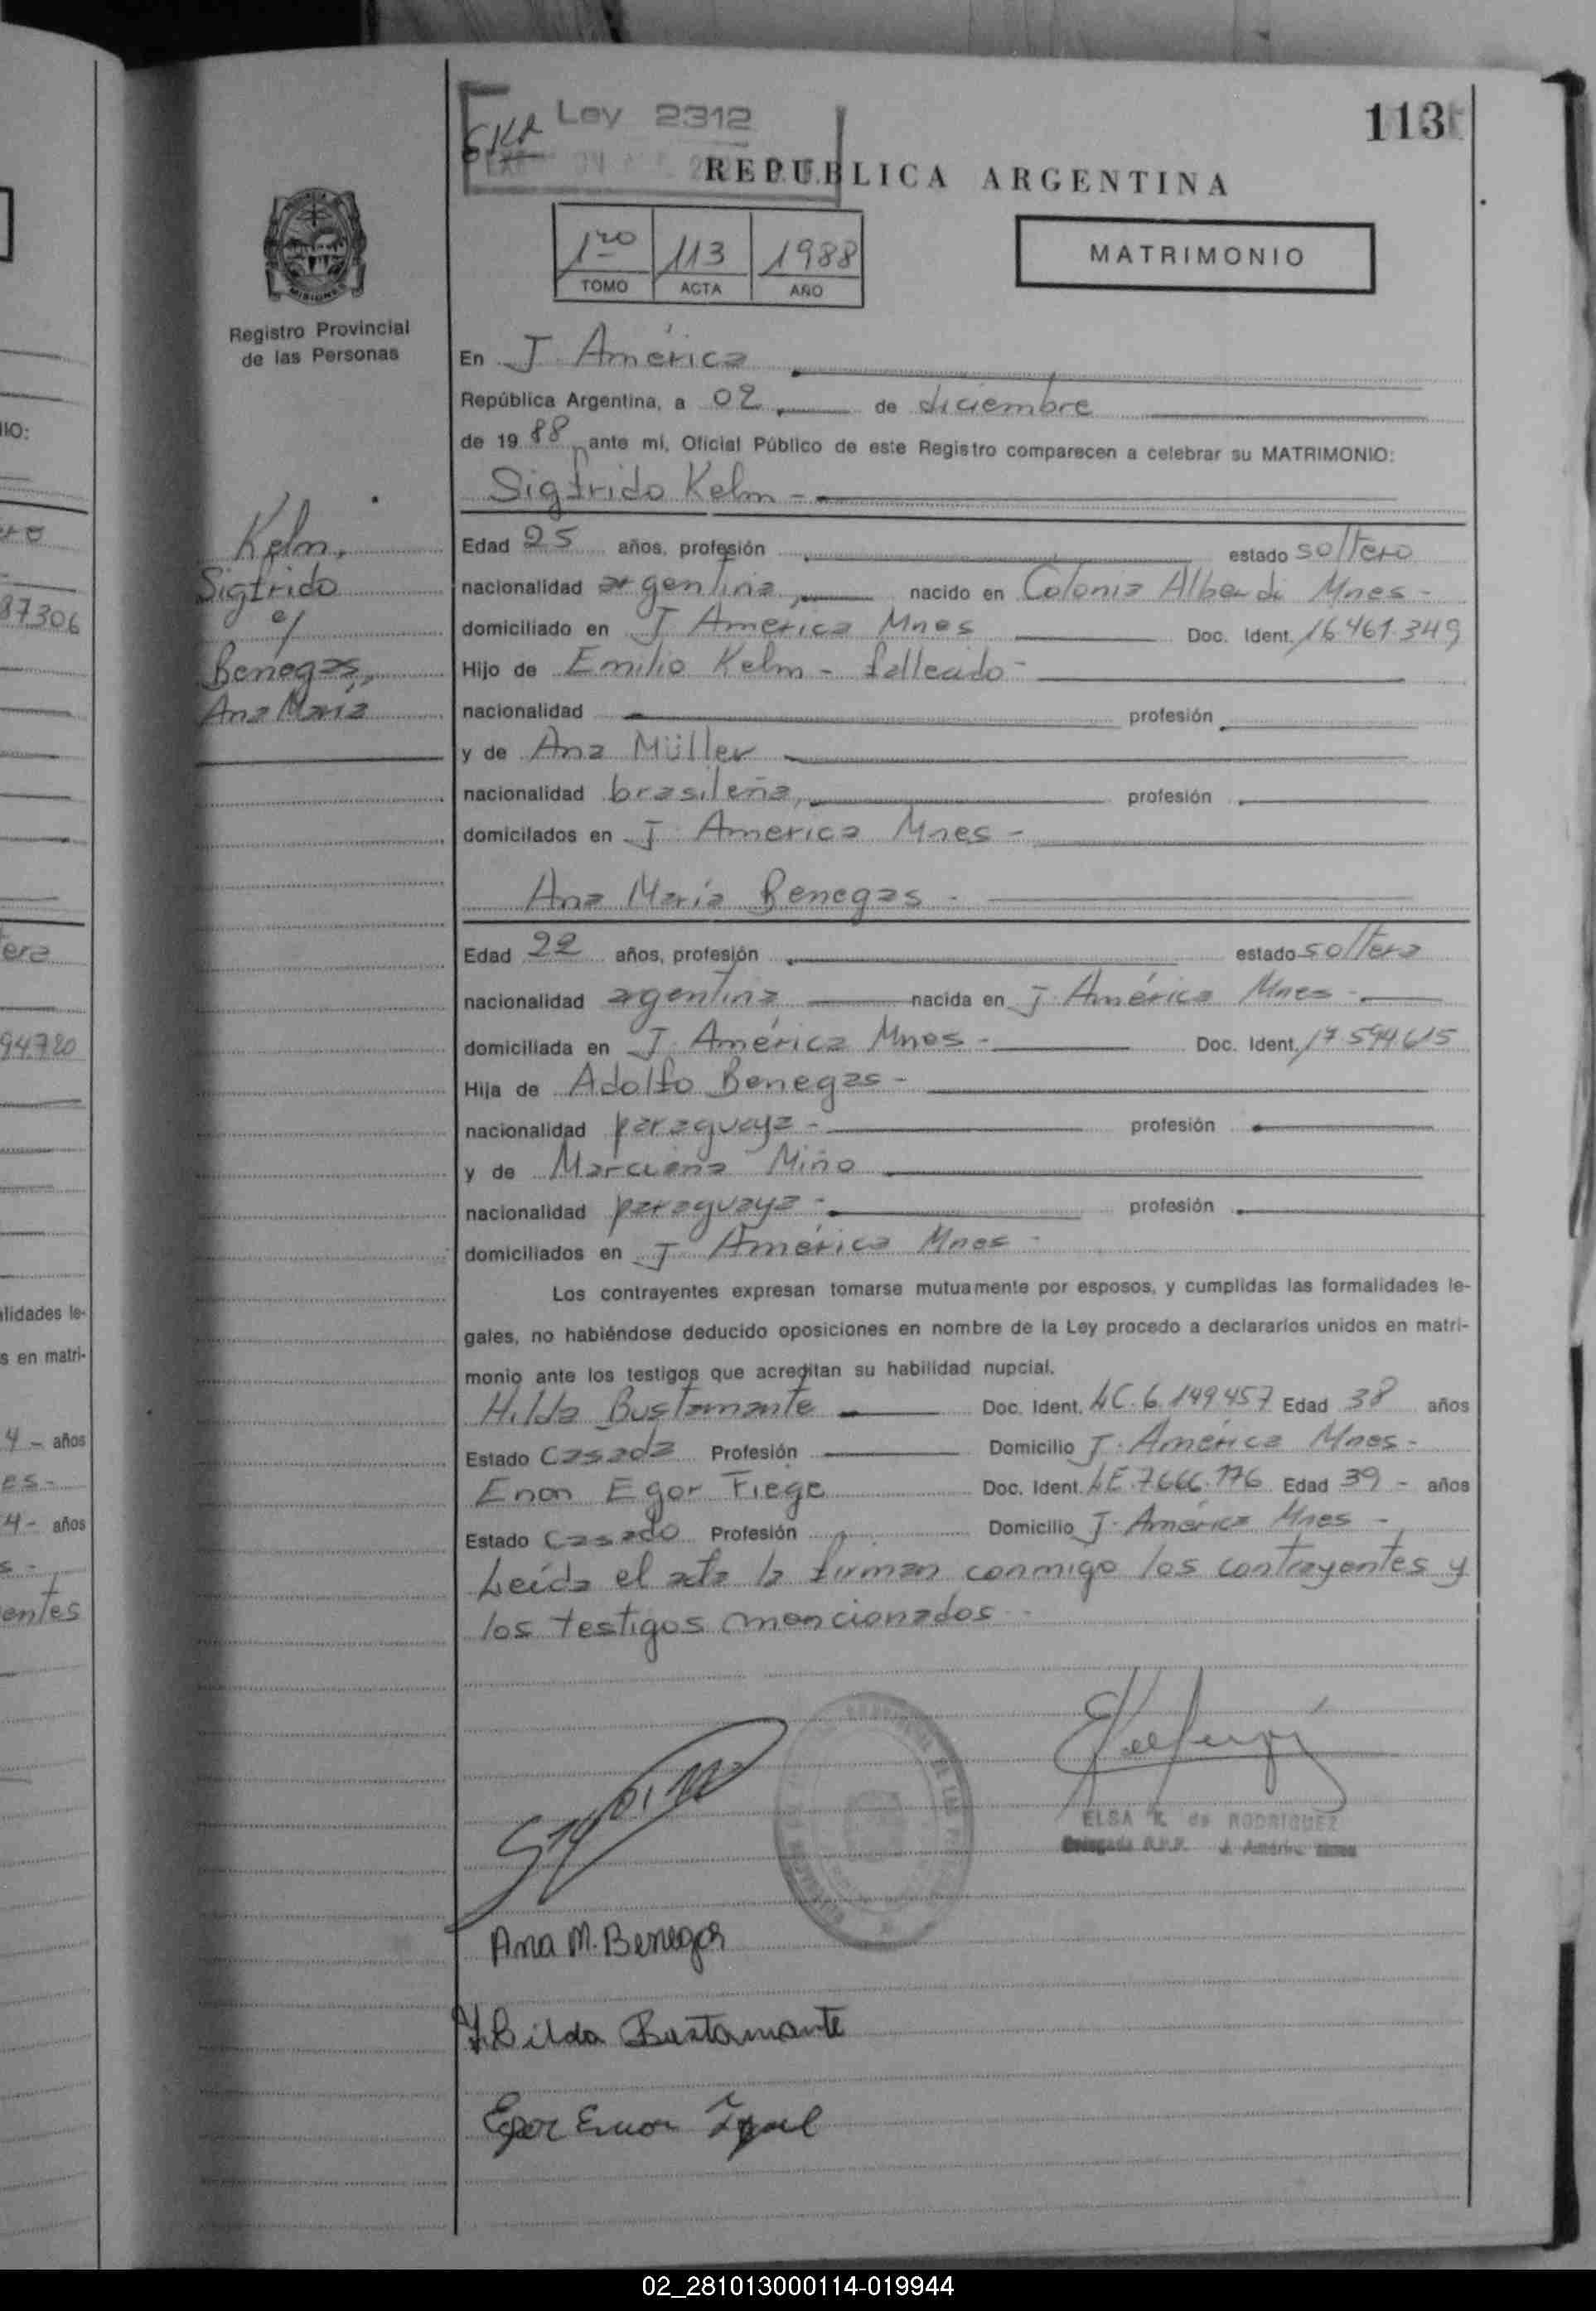 Ley 2312
113
REPUBLICA ARGENTINA
1ro 113 1988
TOMO ACTA AÑO
MATRIMONIO
MISIONES
Registro Provincial
de las Personas
En J. América
República Argentina, a 02 de diciembre
de 1988 ante mí, Oficial Público de este Registro comparecen a celebrar su MATRIMONIO:
Sigfrido Kelm -
Kelm,
Sigfrido
c/
Benegas,
Ana María
Edad 25 años, profesión estado soltero
nacionalidad argentina, nacido en Colonia Alberdi Mnes -
domiciliado en J América Mnes Doc. Ident. 16.461.349
Hijo de Emilio Kelm - fallecido -
nacionalidad profesión
y de Ana Müller
nacionalidad brasileña, profesión
domicilados en J. America Mnes -
Ana María Benegas -
Edad 22 años, profesión estado soltera
nacionalidad argentina nacida en J. América Mnes -
domiciliada en J. América Mnes - Doc. Ident. 17.594.615
Hija de Adolfo Benegas -
nacionalidad paraguaya - profesión
y de Marciana Miño
nacionalidad paraguaya - profesión
domiciliados en J. América Mnes -
Los contrayentes expresan tomarse mutuamente por esposos, y cumplidas las formalidades le-
gales, no habiéndose deducido oposiciones en nombre de la Ley procedo a declararlos unidos en matri-
monio ante los testigos que acreditan su habilidad nupcial.
Hilda Bustamante Doc. Ident. LC. 6.149.457 Edad 38 años
Estado Casada Profesión Domicilio J. América Mnes -
Enon Egor Fiege Doc. Ident. LE. 7.666.176 Edad 39 - años
Estado Casado Profesión Domicilio J. América Mnes -
Leída el acta la firman conmigo los contrayentes y
los testigos mencionados -
ELSA K. de RODRIGUEZ
Delegada R.P.P. J. América Mnes
Ana M. Benegas
Hilda Bustamante
Egor Enon
02_281013000114-019944